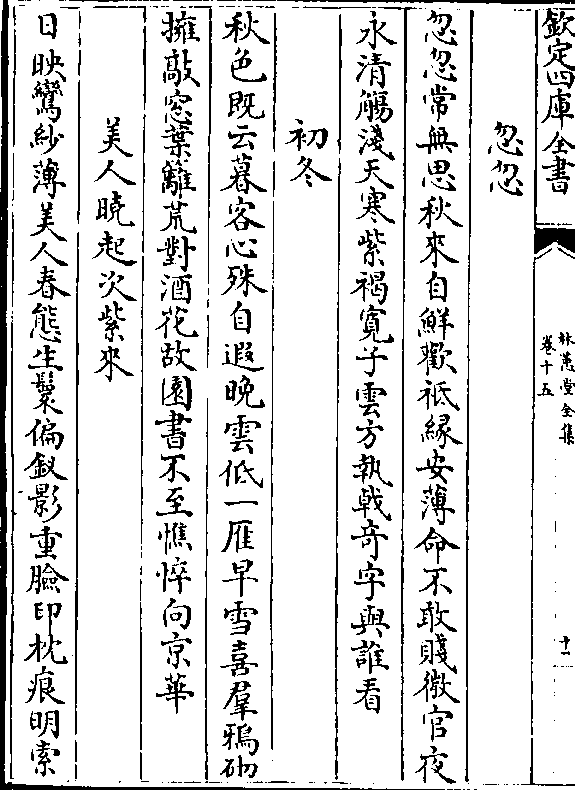 欽定四庫全書
林蕙堂全集
卷十五
十一
忽忽
忽忽常無思秋來自鮮歡祗緣安薄命不敢賤微官夜
永清觴淺天寒紫褐寛子雲方執戟竒字與誰看
初冬
秋色既云暮客心殊自遐晚雲低一雁早雪喜羣鴉砌
擁敲窓葉籬荒對酒花故園書不至憔悴向京華
美人曉起次紫來
日映鸞紗薄美人春態生鬟偏釵影重臉印枕痕明索